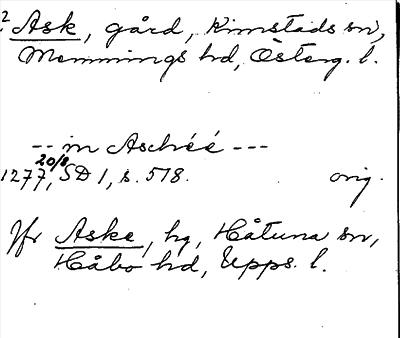 2 Ask, gård, Kimstads sn,
Memmings hd, Österg. l.
-- in Aschéé ---
20/8
1277, SD 1, s. 518. orig.
Jfr Aske, hg, Håtuna sn,
Håbo hd, Upps. l.